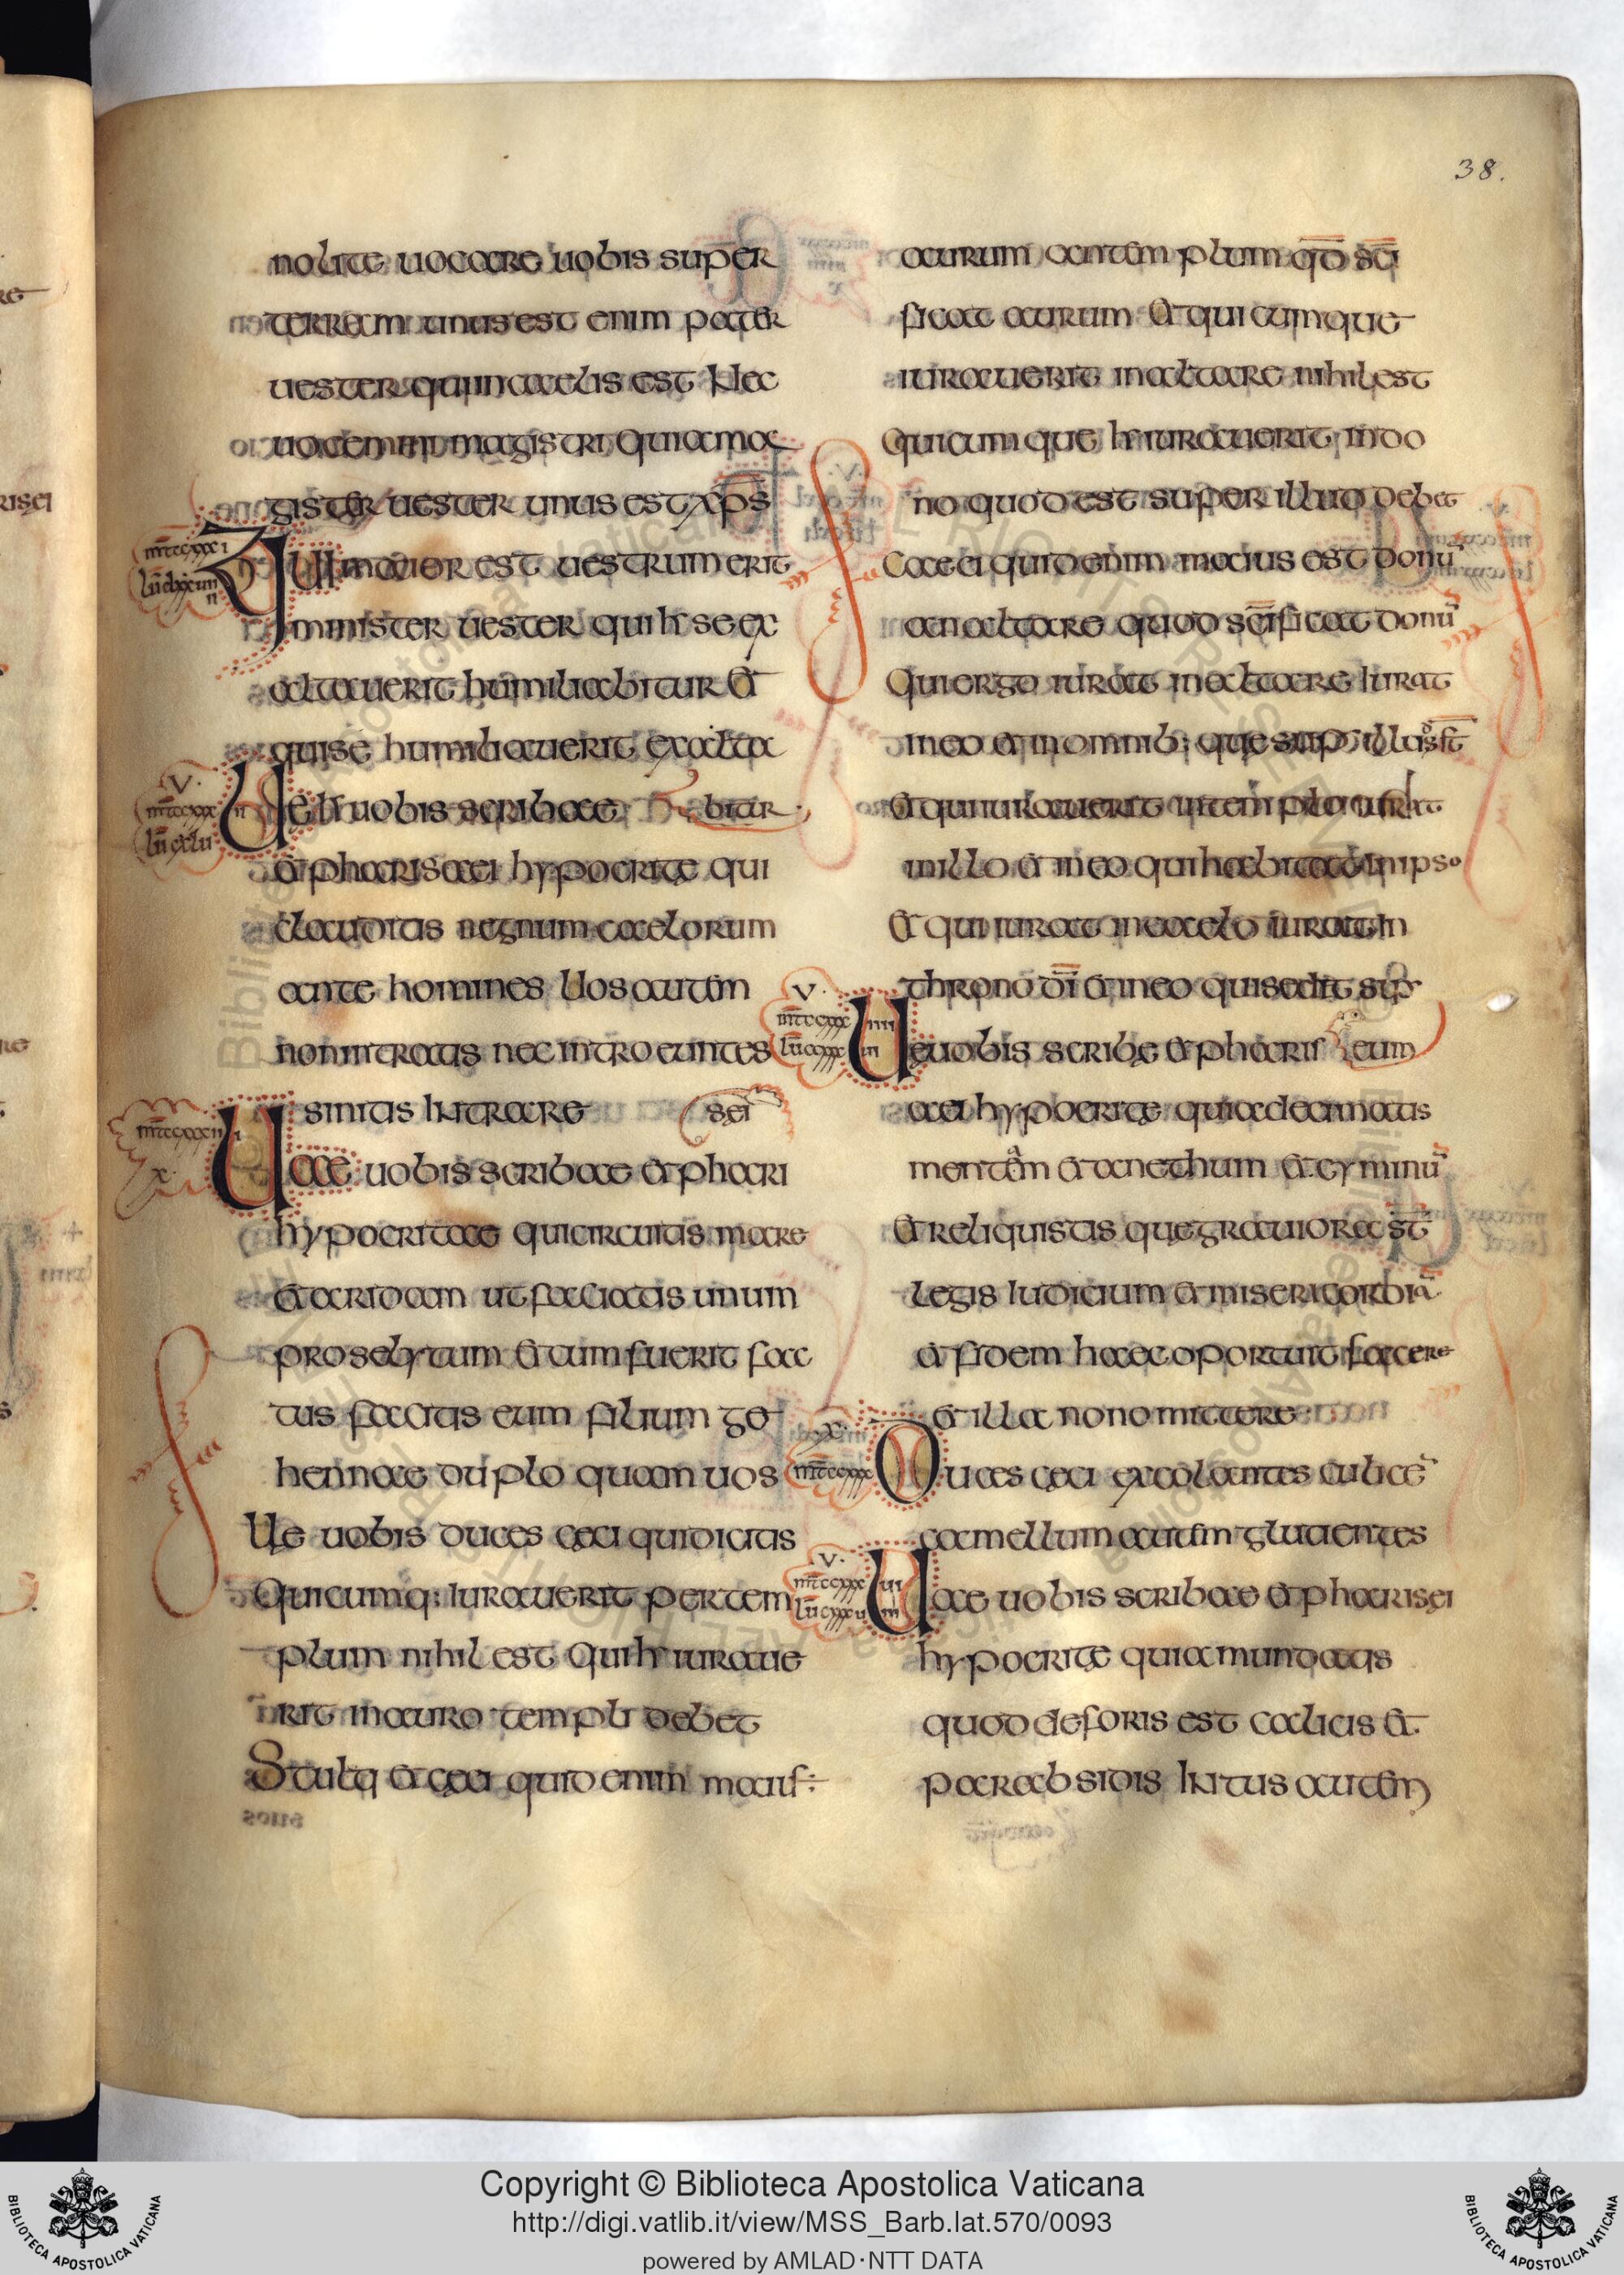 38.
nolite uocare uobis super
terram unus est enim pater
uester qui in caelis est Nec
uocemini magistri quia ma
gister uester unus est xp̄s
Qui maior est uestrum erit
minister uester qui h̄ se ex
altauerit humiliabitur Et
qui se humiliauerit exalta
bitur
Ue h̄ uobis scribae
et pharisaei hypocritę qui
clauditis regnum caelorum
ante homines Uos autem
non intratis nec introeuntes
sinitis intrare
sei
Uae uobis scribae et phari
hypocritae qui circuitis mare
et aridam ut faciatis unum
proselytum et cum fuerit fac
tus facitis eum filium ge
hennae duplo quam uos
Ue uobis duces ceci qui dicitis
Quicumq; iurauerit per tem
plum nihil est Qui h̄ iuraue
rit in auro templi debet
Stulti et ceci quid enim maius
aurum an tem plum qd̄ sc̄i
ficat aurum Et quicumque
iurauerit in altare nihil est
Quicumque h̄ iurauerit in do
no quod est super illud debet
Caeci quid enim maius est donū
an altare quod sc̄ificat donū
Qui ergo iurat in altare iurat
in eo et in omnib; que sup illud st̄
Et qui iurauerit in templo iurat
in illo et in eo qui habitat in ipso
Et qui iurat in caelo iurat in
throno dī et in eo qui sedet sup
eum
Ue uobis scribę et pharis
aei hypocritę quia decimatis
mentam et anethum et cyminū
Et reliquistis que grauiora st̄
legis iudicium et misericordiā
et fidem haec oportuit facere
et illa non omittere
Duces ceci excolantes culicē
camellum autem glutientes
Uae uobis scribae et pharisei
hypocritę quia mundatis
quod deforis est calicis et
parabsidis Intus autem
Copyright © Biblioteca Apostolica Vaticana
http://digi.vatlib.it/view/MSS_Barb.lat.570/0093
powered by AMLAD·NTT DATA
BIBLIOTECA APOSTOLICA VATICANA
BIBLIOTECA APOSTOLICA VATICANA